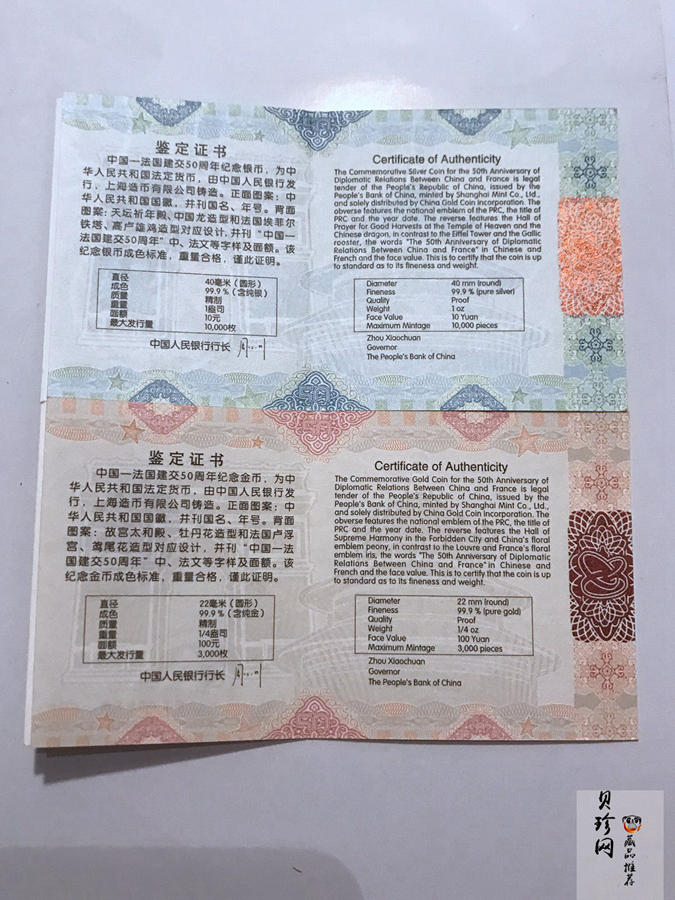 鉴定证书
中国—法国建交50周年纪念银币，为中
华人民共和国法定货币，由中国人民银行发
行，上海造币有限公司铸造。正面图案：中
华人民共和国国徽，并刊国名、年号。背面
图案：天坛祈年殿、中国龙造型和法国埃菲尔
铁塔、高卢雄鸡造型对应设计，并刊“中国—
法国建交50周年”中、法文等字样及面额。该
纪念银币成色标准，重量合格，谨此证明。
直径 40毫米（圆形）
成色 99.9%（含纯银）
质量 精制
重量 1盎司
面额 10元
最大发行量 10,000枚
中国人民银行行长
Certificate of Authenticity
The Commemorative Silver Coin for the 50th Anniversary of
Diplomatic Relations Between China and France is legal
tender of the People's Republic of China, issued by the
People's Bank of China, minted by Shanghai Mint Co., Ltd.,
and solely distributed by China Gold Coin Incorporation. The
obverse features the national emblem of the PRC, the title of
PRC and the year date. The reverse features the Hall of
Prayer for Good Harvests at the Temple of Heaven and the
Chinese dragon, in contrast to the Eiffel Tower and the Gallic
rooster, the words "The 50th Anniversary of Diplomatic
Relations Between China and France" in Chinese and
French and the face value. This is to certify that the coin is up
to standard as to its fineness and weight.
Diameter 40 mm (round)
Fineness 99.9% (pure silver)
Quality Proof
Weight 1 oz
Face Value 10 Yuan
Maximum Mintage 10,000 pieces
Zhou Xiaochuan
Governor
The People's Bank of China
鉴定证书
中国—法国建交50周年纪念金币，为中
华人民共和国法定货币，由中国人民银行发
行，上海造币有限公司铸造。正面图案：中
华人民共和国国徽，并刊国名、年号。背面
图案：故宫太和殿、牡丹花造型和法国卢浮
宫、鸢尾花造型对应设计，并刊“中国—法
国建交50周年”中、法文等字样及面额。该
纪念金币成色标准，重量合格，谨此证明。
直径 22毫米（圆形）
成色 99.9%（含纯金）
质量 精制
重量 1/4盎司
面额 100元
最大发行量 3,000枚
中国人民银行行长
Certificate of Authenticity
The Commemorative Gold Coin for the 50th Anniversary of
Diplomatic Relations Between China and France is legal
tender of the People's Republic of China, issued by the
People's Bank of China, minted by Shanghai Mint Co., Ltd.,
and solely distributed by China Gold Coin Incorporation. The
obverse features the national emblem of the PRC, the title of
PRC and the year date. The reverse features the Hall of
Supreme Harmony in the Forbidden City and China's floral
emblem peony, in contrast to the Louvre and France's floral
emblem iris, the words "The 50th Anniversary of Diplomatic
Relations Between China and France" in Chinese and
French and the face value. This is to certify that the coin is up
to standard as to its fineness and weight.
Diameter 22 mm (round)
Fineness 99.9% (pure gold)
Quality Proof
Weight 1/4 oz
Face Value 100 Yuan
Maximum Mintage 3,000 pieces
Zhou Xiaochuan
Governor
The People's Bank of China
贝珍网
藏品推荐